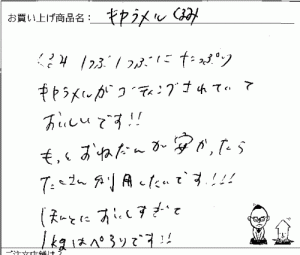 お買い上げ商品名： キャラメルくるみ
くるみ 1つぶ1つぶに たっぷり
キャラメルがコーティングされていて
おいしいです!!
もっとおねだんが安かったら
たくさん利用したいです!!!
ほんとにおいしすぎて
1kgはぺろりです!!
ご注文店舗は？